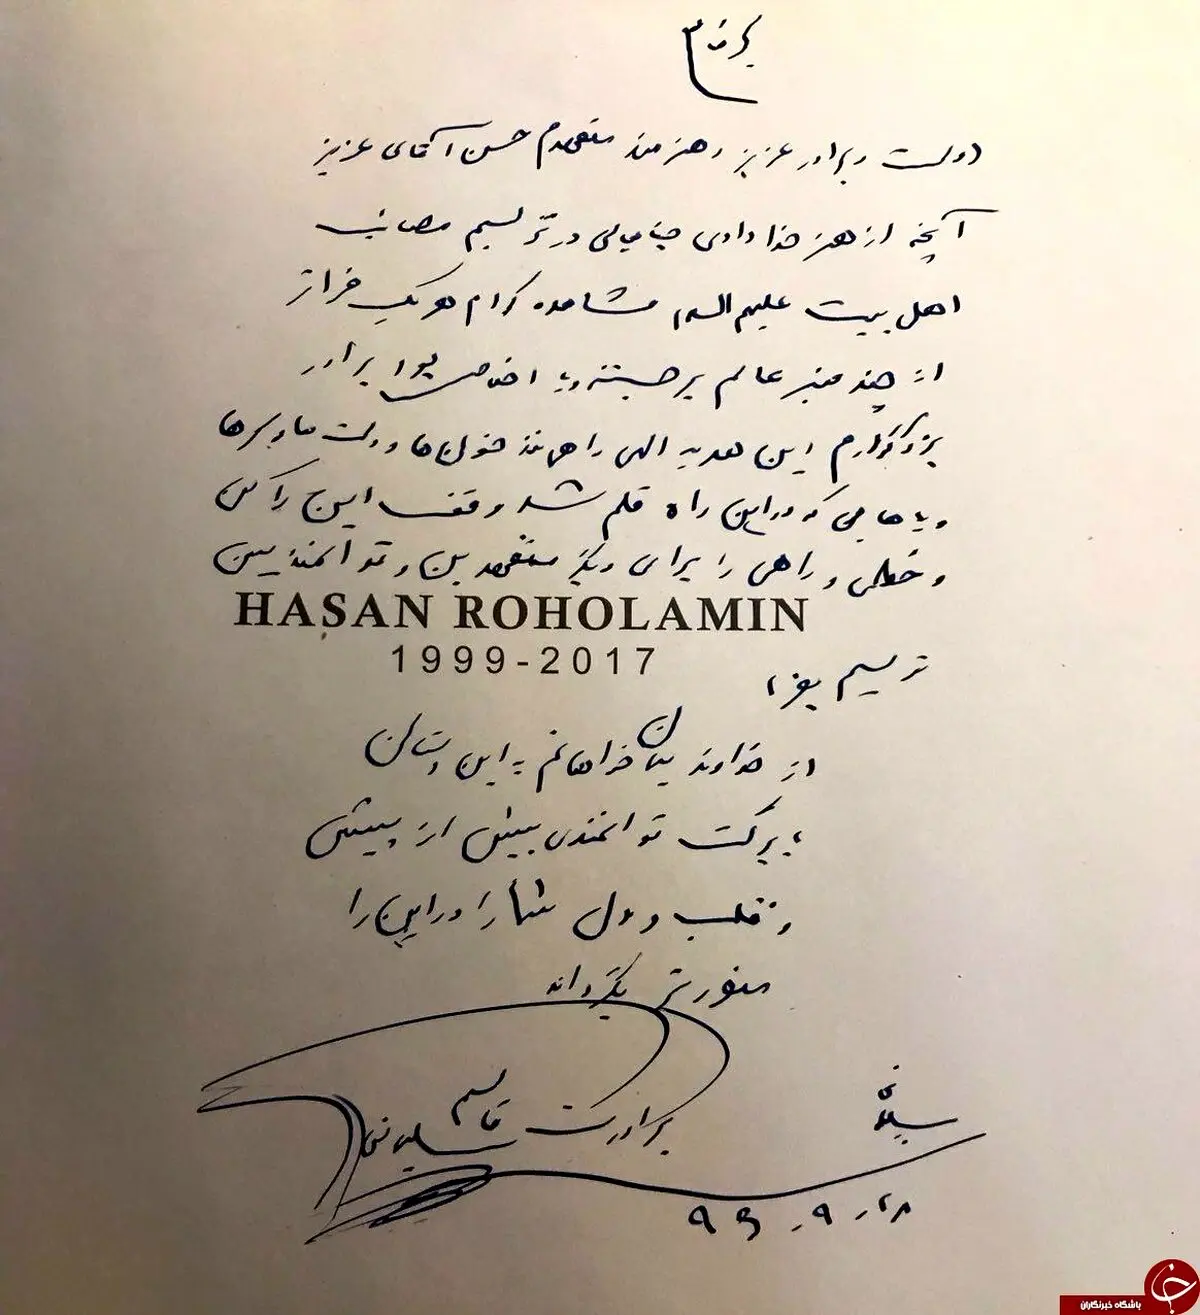 دوست و برادر عزیز و هنرمند متعهدم حسن آقای عزیز
آنچه از هنر خدادادی جنابعالی در ترسیم مصائب
اهل بیت علیهم السلام مشاهده کردم هر یک فراتر
از چند منبر عالم برجسته و با اخلاص بود برادر
بزرگوارم این هدیه الهی را همانند خون‌ها و دست‌ها و سرها
و پاهایی که در این راه قلم شد وقف این راه کن
و خطی و راهی را برای دیگر متعهدین و توانمندیین
HASAN ROHOLAMIN
1999-2017
ترسیم بفرما
از خداوند سبحان خواهانم به این دستان
با برکت توانمندی بیش از پیش
و قلب و دل شما را در این راه
منورتر بگرداند
برادرت قاسم
سلیمانی
۹۶.۹.۲۸
باشگاه خبرنگاران